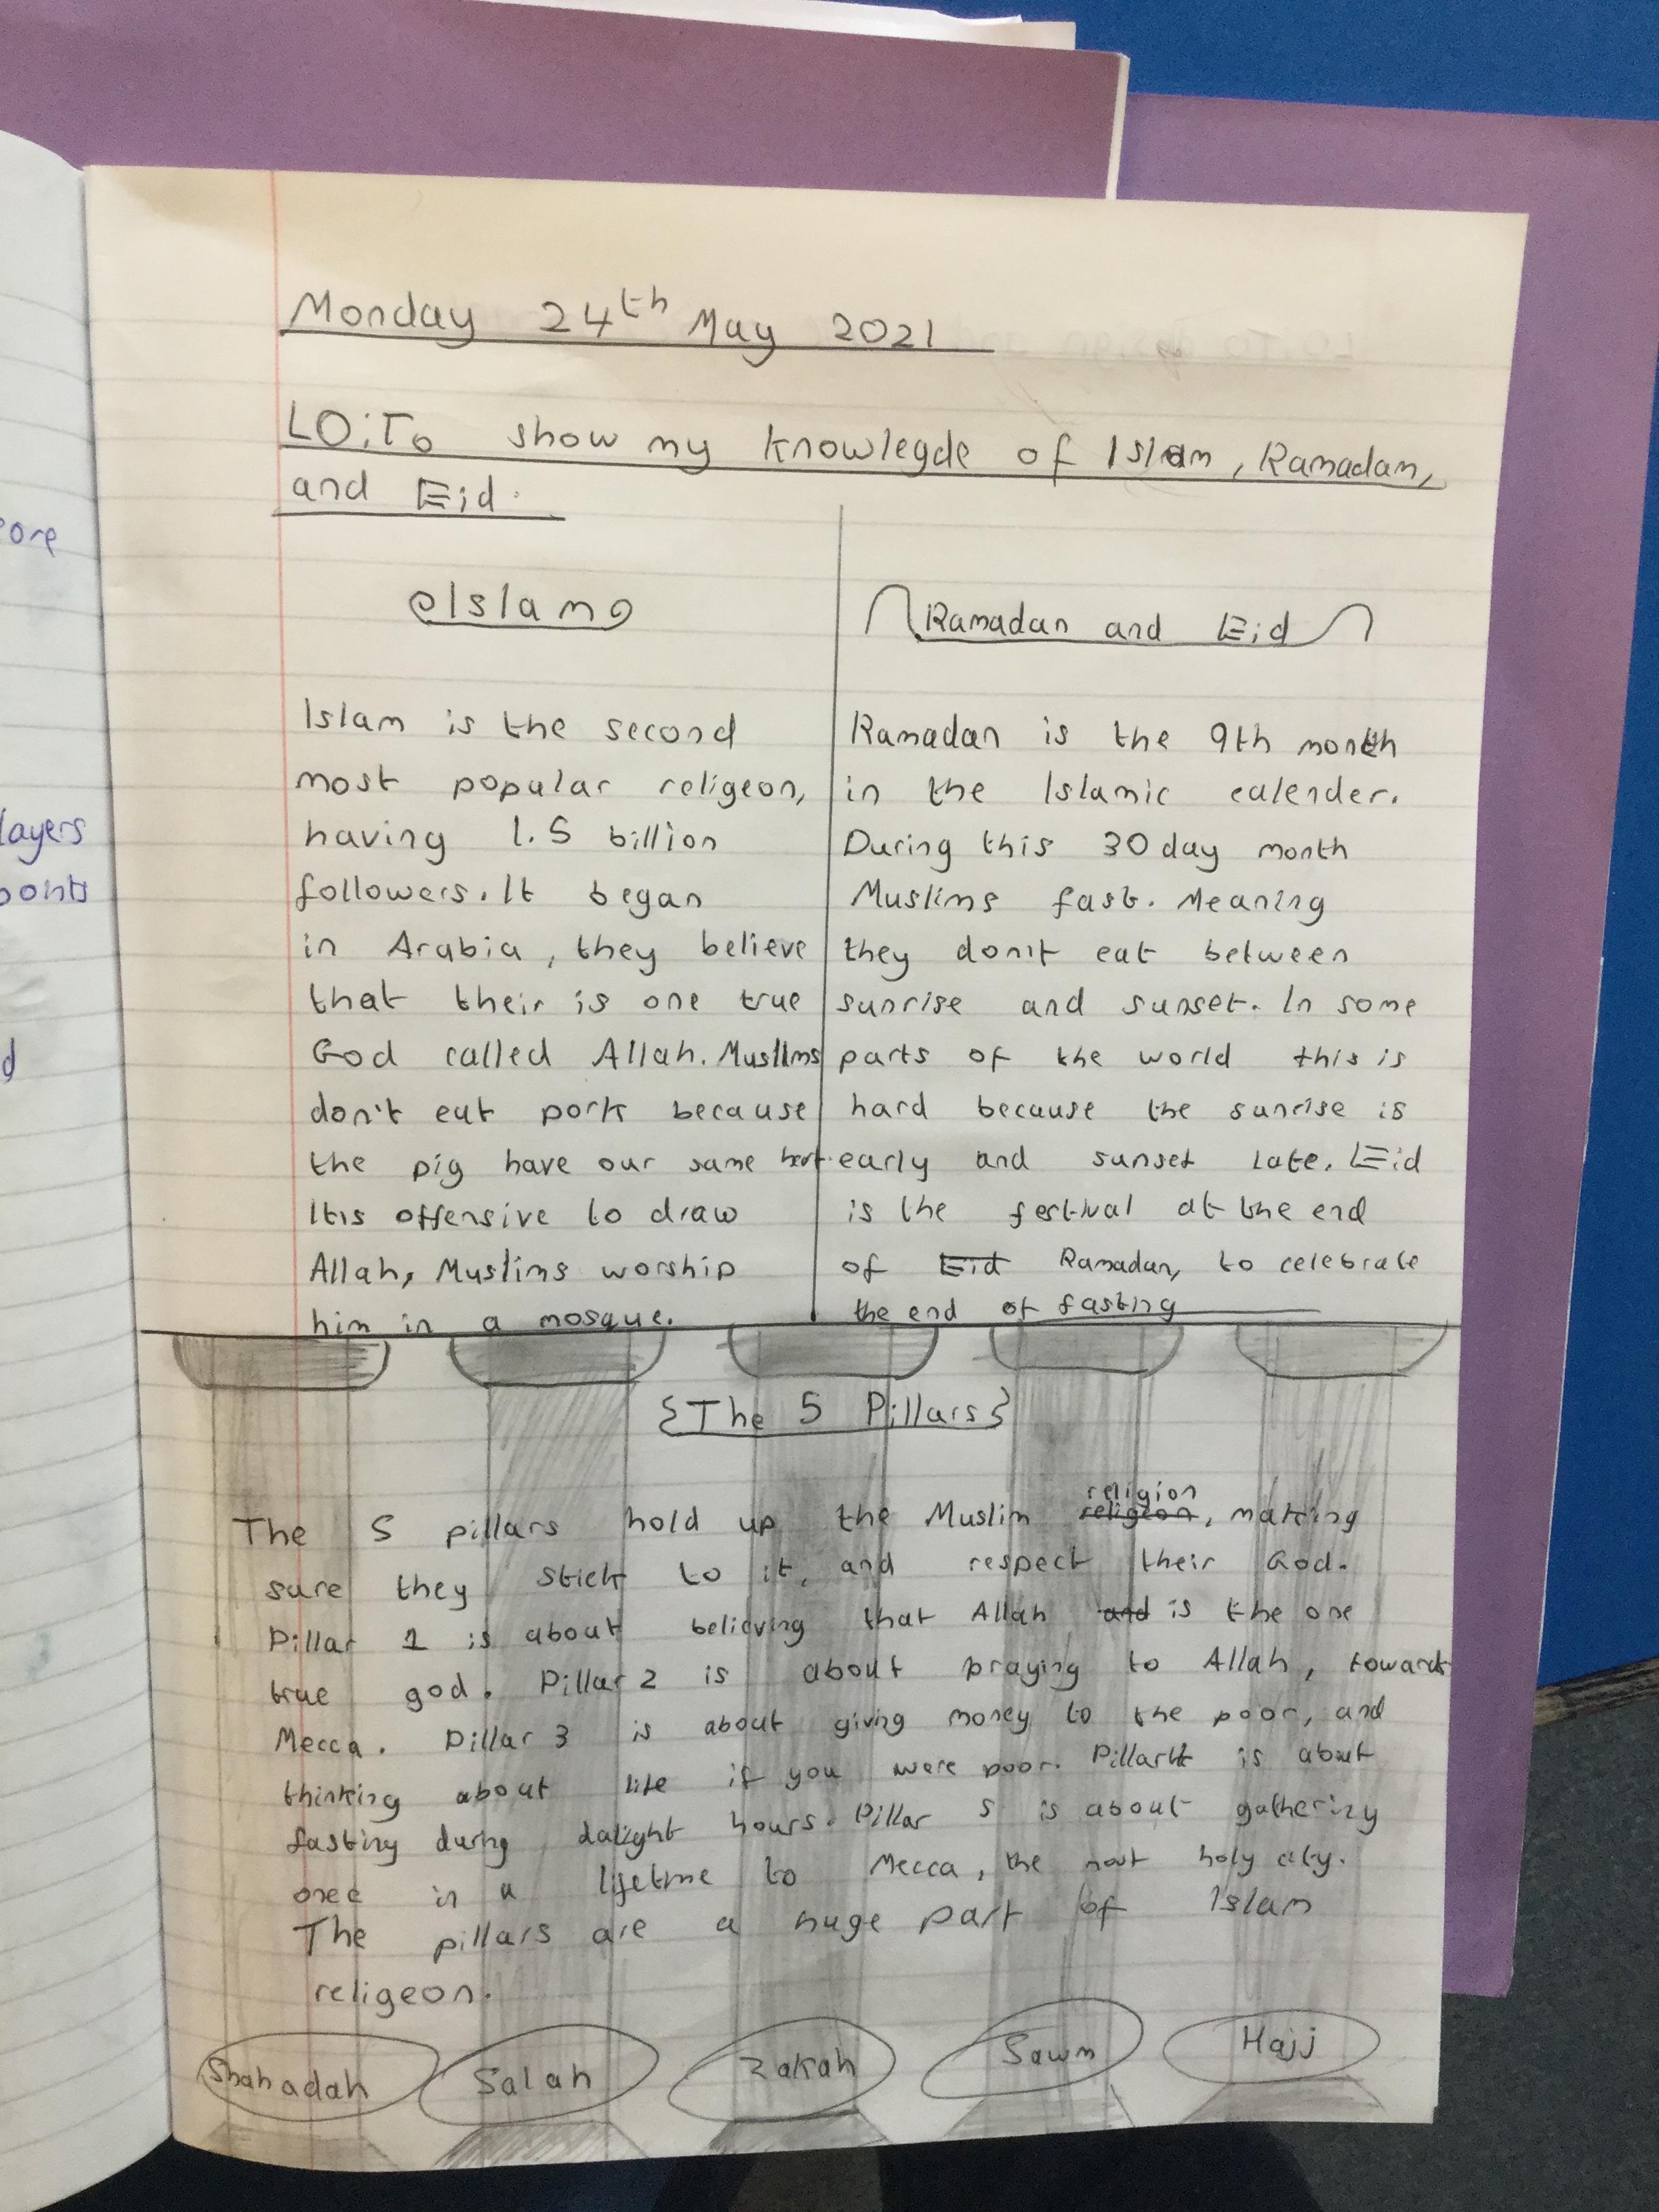 Monday 24th May 2021
LO: To show my knowlegde of Islam, Ramadan,
and Eid.
Islam
Islam is the second
most popular religeon,
having 1.5 billion
followers. It began
in Arabia, they believe
that their is one true
God called Allah. Muslims
don't eat pork because
the pig have our same
Itis offensive to draw
Allah, Muslims worship
him in a mosque.
Ramadan and Eid
Ramadan is the 9th month
in the Islamic calender.
During this 30 day month
Muslims fast. Meaning
they don't eat between
sunrise and sunset. In some
parts of the world this is
hard because the sunrise is
early and sunset late. Eid
is the festival at the end
of Eid Ramadan, to celebrate
the end of fasting
{The 5 Pillars}
religion
The 5 pillars hold up the Muslim religeon, making
sure they stick to it, and respect their God.
Pillar 1 is about believing that Allah and is the one
true god. Pillar 2 is about praying to Allah, towards
Mecca. Pillar 3 is about giving money to the poor, and
thinking about life if you were poor. Pillar 4 is about
fasting during dalight hours. Pillar 5 is about gathering
once in a lifetime to Mecca, the most holy city.
The pillars are a huge part of Islam
religeon.
Shahadah Salah Zakah Sawm Hajj
ore
layers
points
d